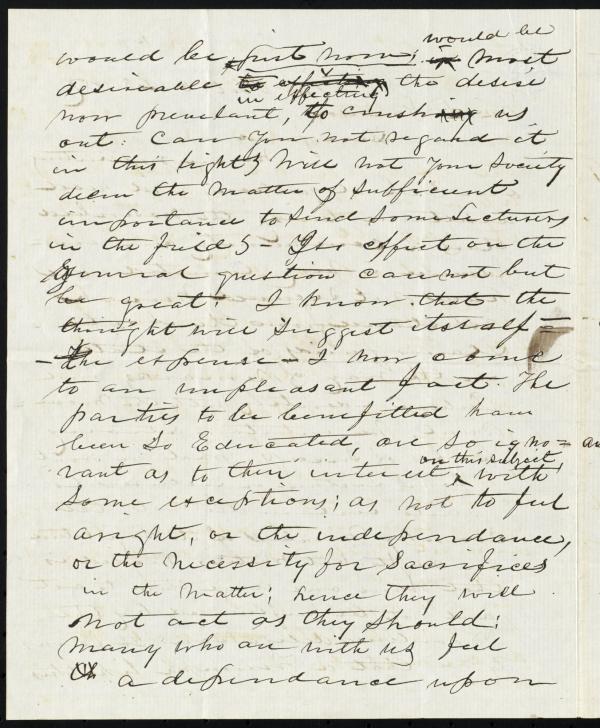 would be
would be just now; is most
desireable to effecting the desise
in effecting
now prevelant, to crushing us
out: Can you not regard it
in this light? Will not your Society
deem the matter of Sufficient
importance to Send Some Lecturers
in the field? - Its effect on the
General question can not but
be great! I know that the
thought will Suggest itself -
- The expense - I now come
to an unpleasant fact. The
parties to be benefitted have
been So Educated, are So igno=
on this subject,
rant as to their interest, with
Some exceptions; as not to feel
aright, or the independance,
or the necessity for Sacrifices
in the matter; hence they will
not act as they Should;
many who are with us feel
a dependance upon